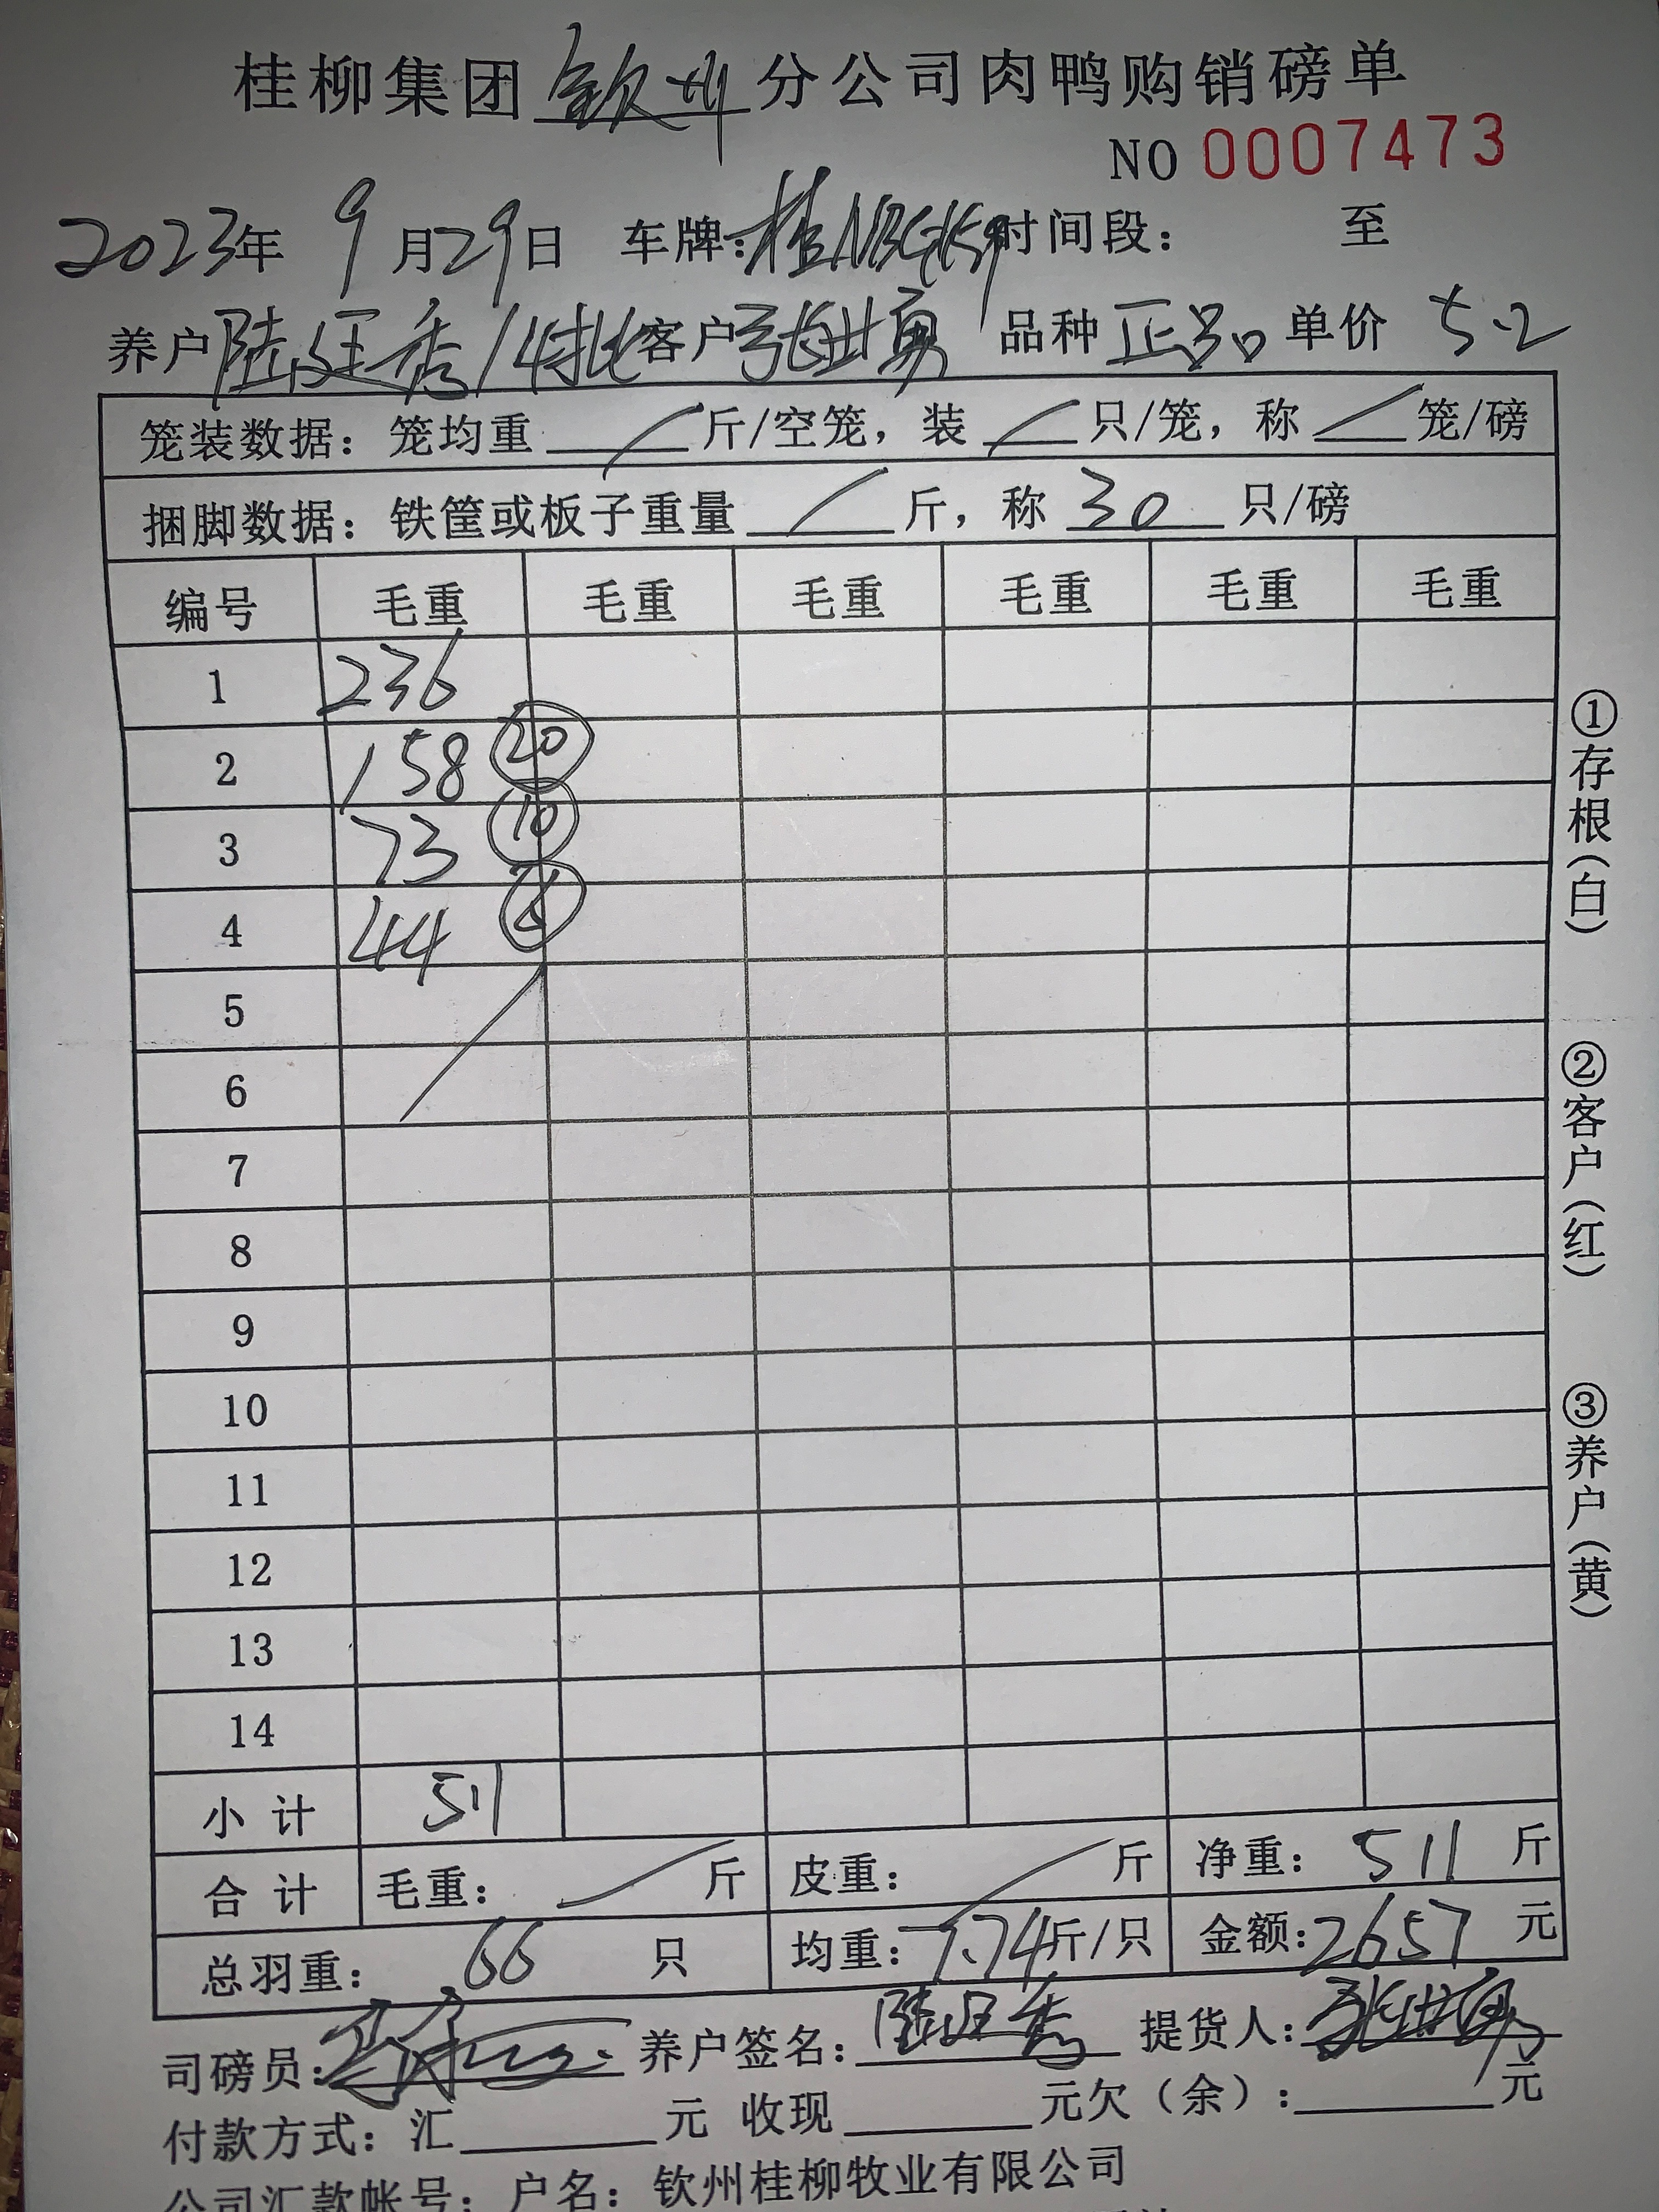 桂柳集团钦州分公司肉鸭购销磅单
NO 0007473
2023年 9月29日 车牌: 时间段: 至
养户陆廷秀14批 客户张世勇 品种 正品 单价 5.2
笼装数据: 笼均重 / 斤/空笼, 装 / 只/笼, 称 / 笼/磅
捆脚数据: 铁筐或板子重量 / 斤, 称 30 只/磅
编号 毛重 毛重 毛重 毛重 毛重 毛重
1 236
2 158 20
3 73 10
4 44 6
5
6
7
8
9
10
11
12
13
14
小计 511
合计 毛重: / 斤 皮重: / 斤 净重: 511 斤
总羽重: 66 只 均重: 7.74斤/只 金额: 2657 元
司磅员: 养户签名: 陆廷秀 提货人: 张世勇
付款方式: 汇 元 收现 元欠(余): 元
公司汇款帐号: 户名: 钦州桂柳牧业有限公司
①存根(白)
②客户(红)
③养户(黄)